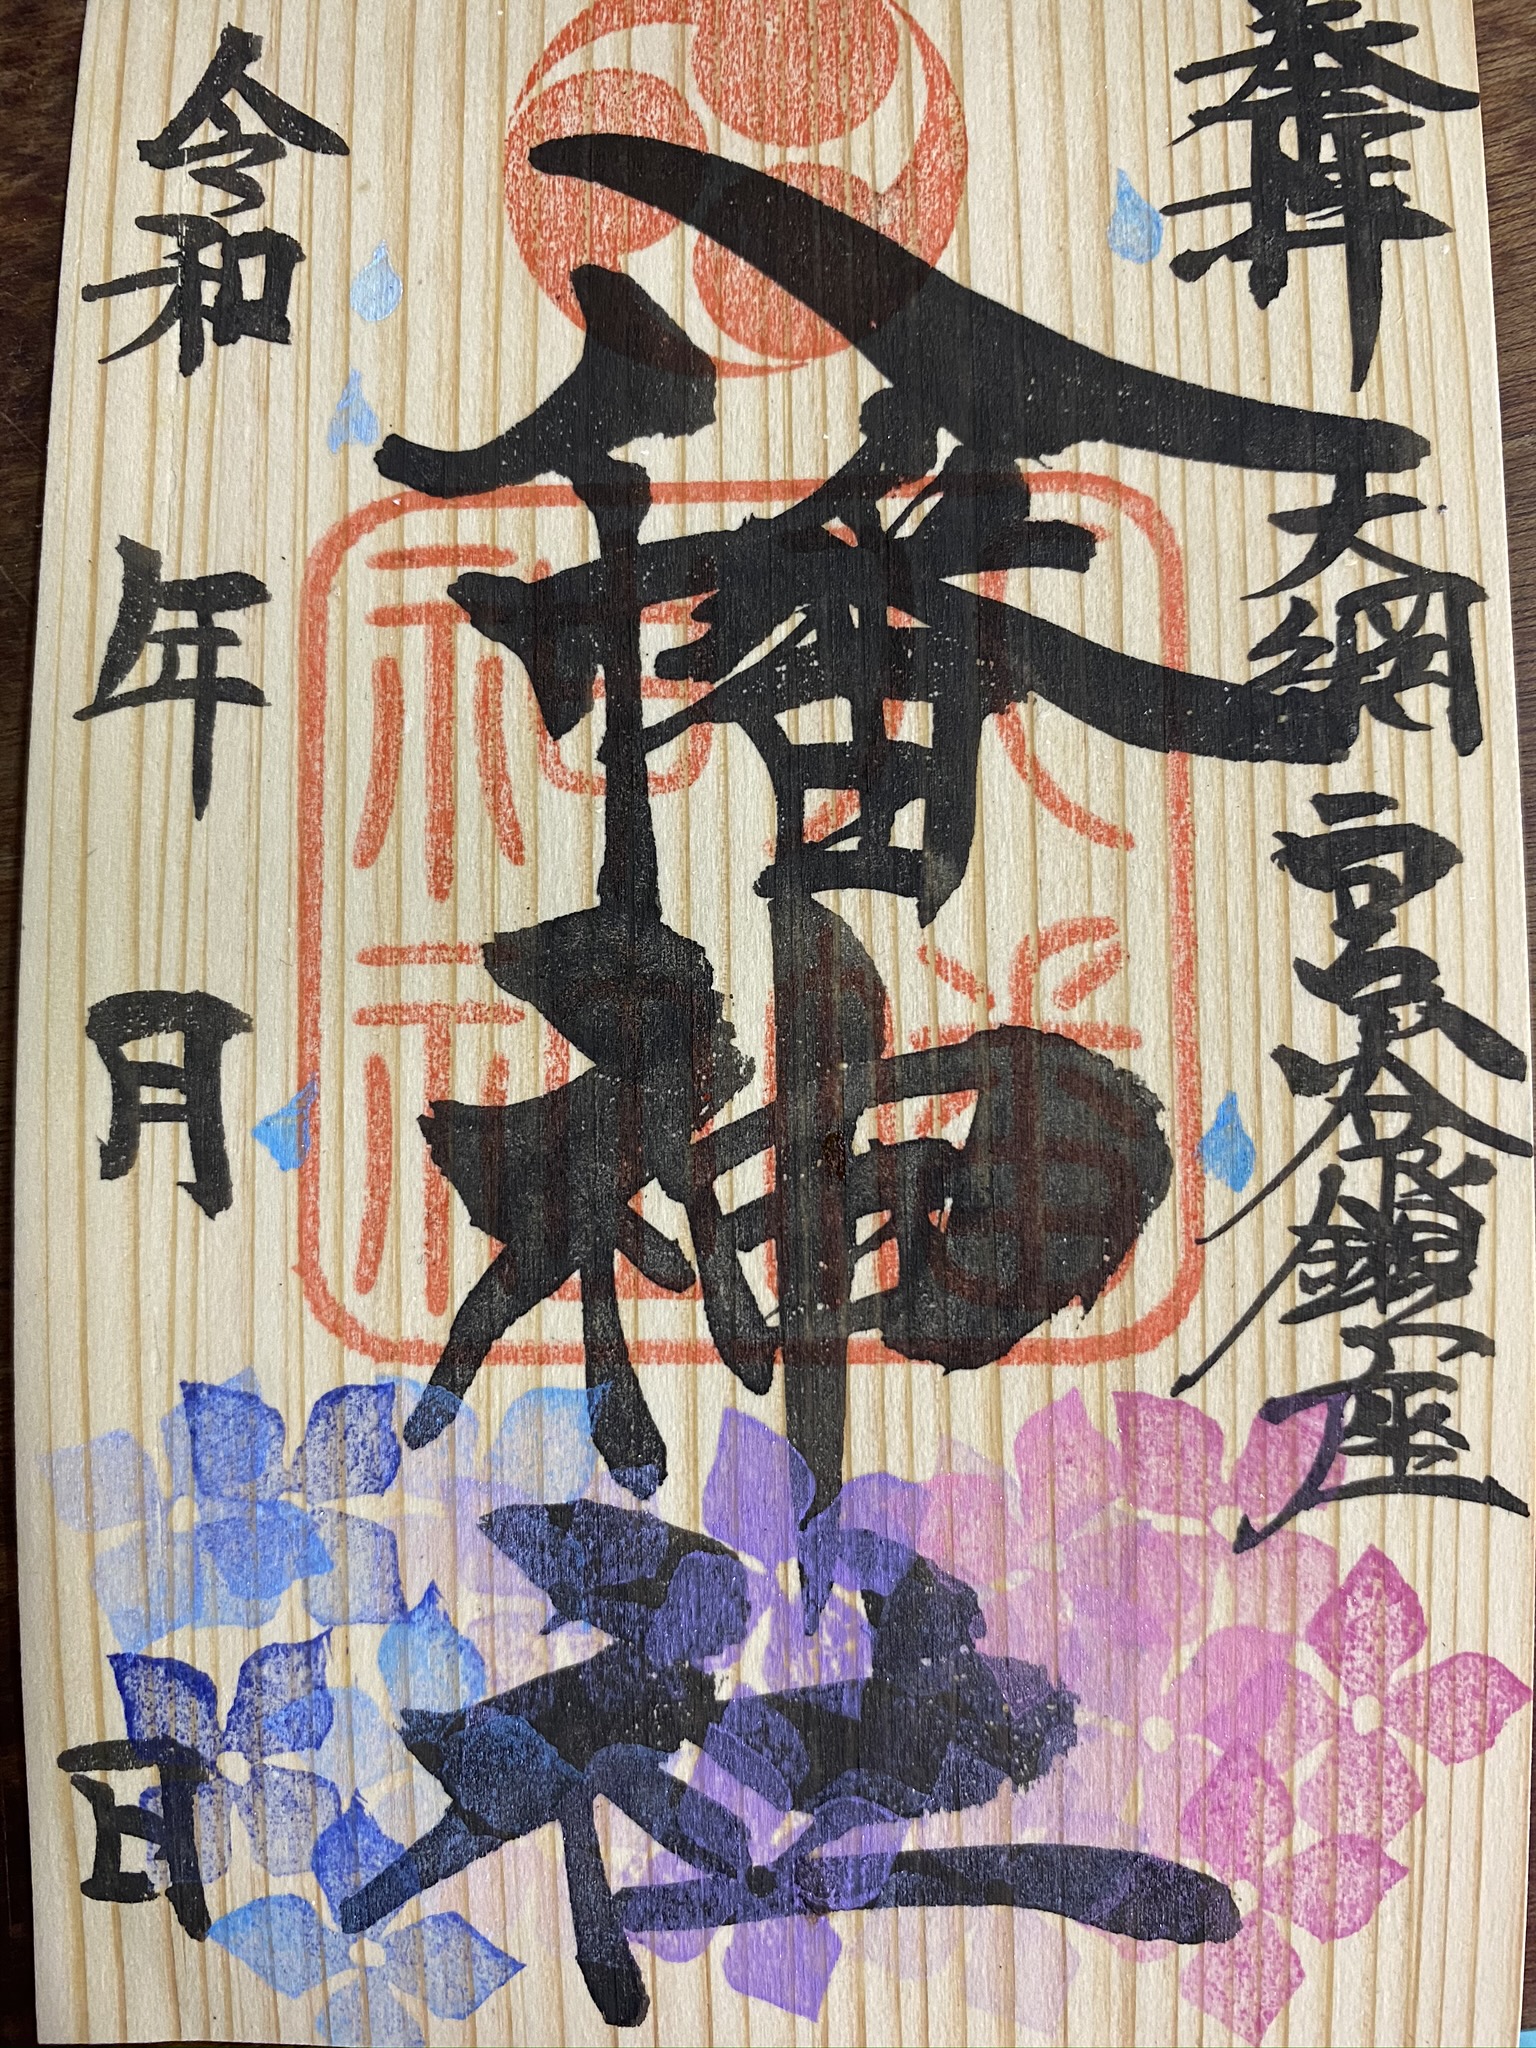 奉拝 大網 宮谷鎮座
八幡神社
八幡
神社
令和 年 月 日